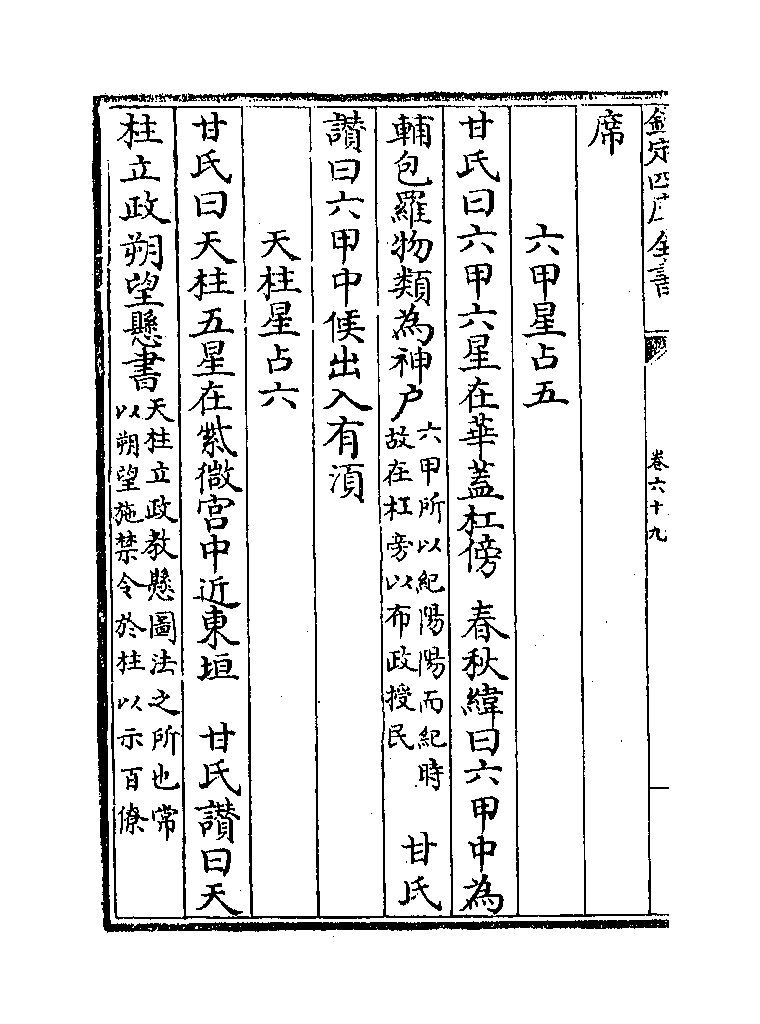 欽定四庫全書
卷六十九
席
六甲星占五
甘氏曰六甲六星在華蓋杠傍　春秋緯曰六甲中為
輔包羅物類為神户六甲所以紀陽陽而紀時故在杠旁以布政授民　甘氏
讃曰六甲中候出入有湏
天柱星占六
甘氏曰天柱五星在紫微宫中近東垣　甘氏讃曰天
柱立政朔望懸書天柱立政教懸圖法之所也常以朔望施禁令於柱以示百僚